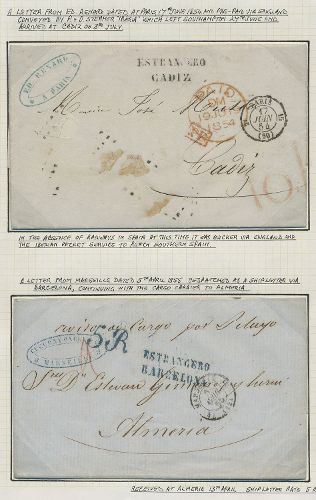 A LETTER FROM ED. RENARD DATED AT PARIS 17TH JUNE 1854 AND PRE-PAID VIA ENGLAND
CONVEYED BY P & O STEAMER "TAGUS" WHICH LEFT SOUTHAMPTON 27TH JUNE AND
ARRIVED AT CADIZ ON 2ND JULY.
ED. RENARD
A PARIS
ESTRANGERO
CADIZ
PAID
19 JU 19
1854
PARIS
JUIN
54
(60)
José
Cadiz
10
IN THE ABSENCE OF RAILWAYS IN SPAIN AT THIS TIME IT WAS QUICKER VIA ENGLAND AND
THE IBERIAN PACKET SERVICE TO REACH SOUTHERN SPAIN.
A LETTER FROM MARSEILLE DATED 5TH APRIL 1855 DESPATCHED AS A SHIP LETTER VIA
BARCELONA, CONTINUING WITH THE CARGO CARRIER TO ALMERIA.
Cargo por Pelayo
MARSEILLE
5R
ESTRANGERO
BARCELONA
Almeria
RECEIVED AT ALMERIA 13TH APRIL SHIP LETTER RATE 5 R